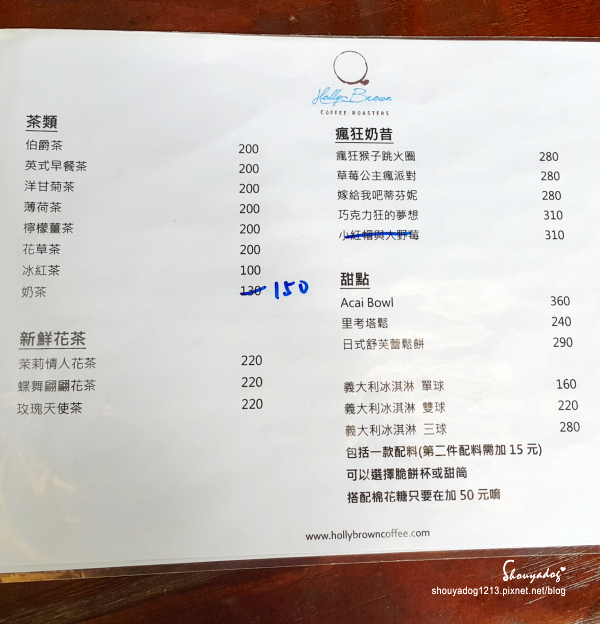 Holly Brown
COFFEE ROASTERS
茶類
伯爵茶 200
英式早餐茶 200
洋甘菊茶 200
薄荷茶 200
檸檬薑茶 200
花草茶 200
冰紅茶 100
奶茶 130 150
新鮮花茶
茉莉情人花茶 220
蝶舞翩翩花茶 220
玫瑰天使茶 220
瘋狂奶昔
瘋狂猴子跳火圈 280
草莓公主瘋派對 280
嫁給我吧蒂芬妮 280
巧克力狂的夢想 310
小紅帽與大野莓 310
甜點
Acai Bowl 360
里考塔鬆 240
日式舒芙蕾鬆餅 290
義大利冰淇淋 單球 160
義大利冰淇淋 雙球 220
義大利冰淇淋 三球 280
包括一款配料(第二件配料需加 15 元)
可以選擇脆餅杯或甜筒
搭配棉花糖只要在加 50 元唷
www.hollybrowncoffee.com
Shouyadog
shouyadog1213.pixnet.net/blog